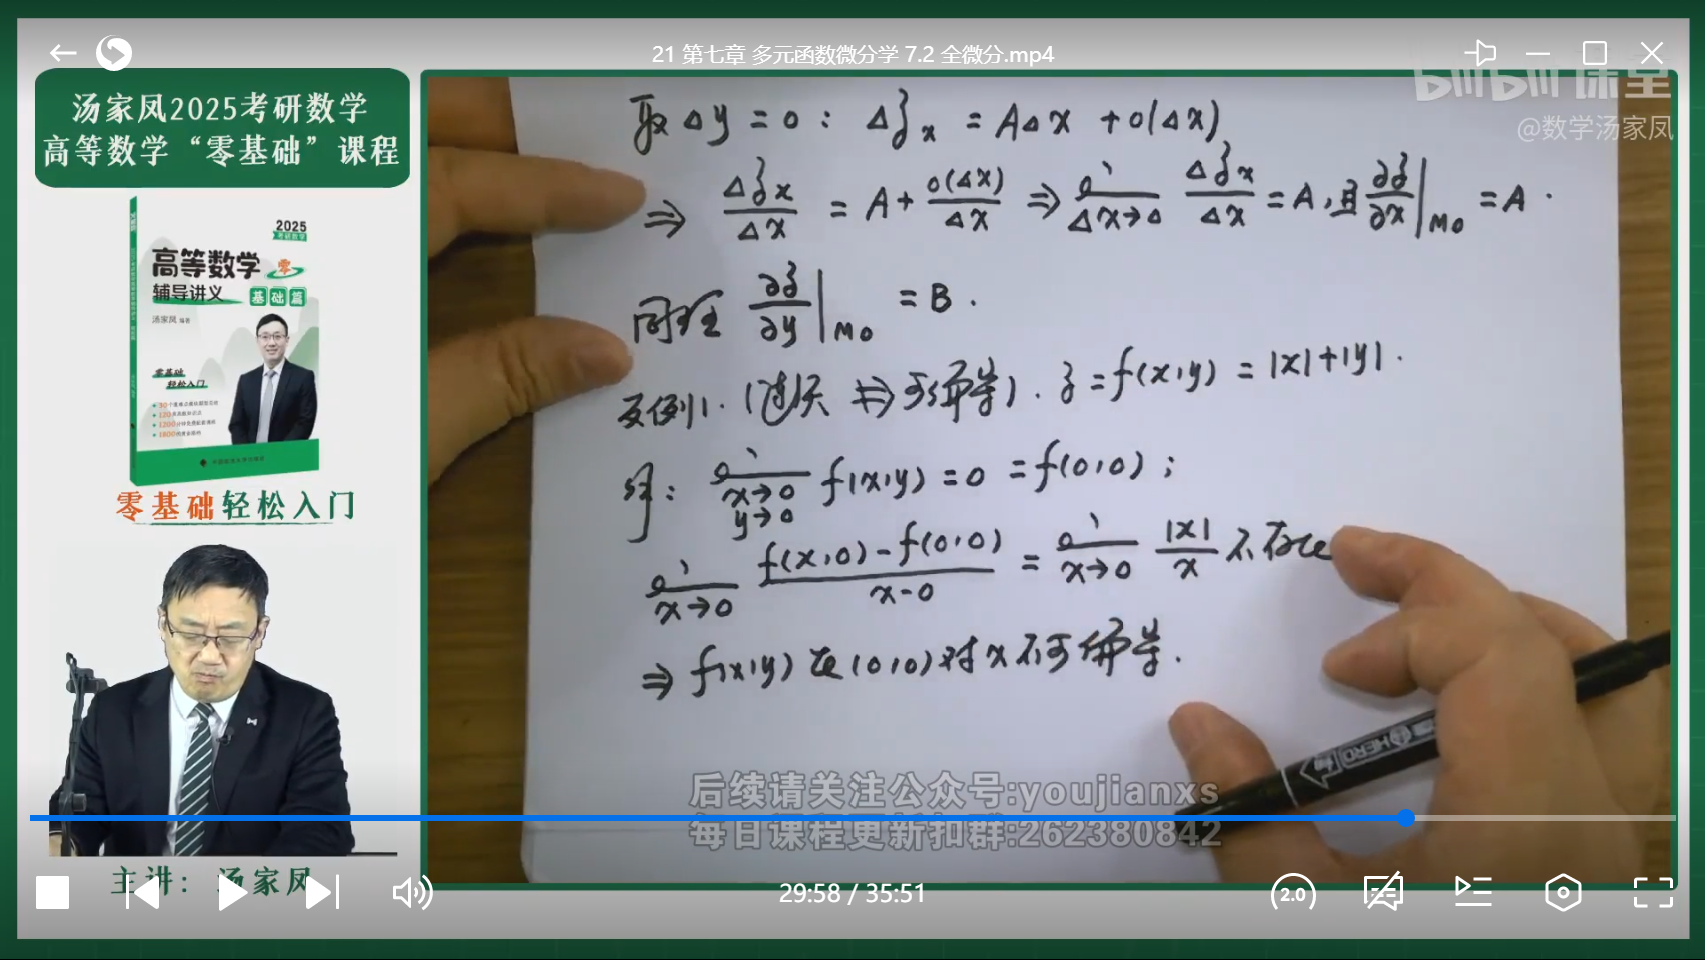 21 第七章 多元函数微分学 7.2 全微分.mp4
汤家凤2025考研数学
高等数学“零基础”课程
bilibili 课堂
@数学汤家凤
2025
考研数学
高等数学 零
辅导讲义 基础篇
汤家凤 编著
零基础
轻松入门
零基础轻松入门
取 Δy = 0 : Δz_x = AΔx + o(Δx)
⇒ Δz_x/Δx = A + o(Δx)/Δx ⇒ lim Δx→0 Δz_x/Δx = A, 且 ∂z/∂x|M0 = A.
同理 ∂z/∂y|M0 = B.
反例1. (连续 ⇏ 可偏导). z = f(x,y) = |x|+|y|.
解: lim x→0 y→0 f(x,y) = 0 = f(0,0) ;
lim x→0 f(x,0)-f(0,0)/x-0 = lim x→0 |x|/x 不存在
⇒ f(x,y) 在(0,0)对x不可偏导.
HERO
后续请关注公众号:youjianxs
每日课程更新扣群:262380842
主讲: 汤家凤
29:58 / 35:51
2.0